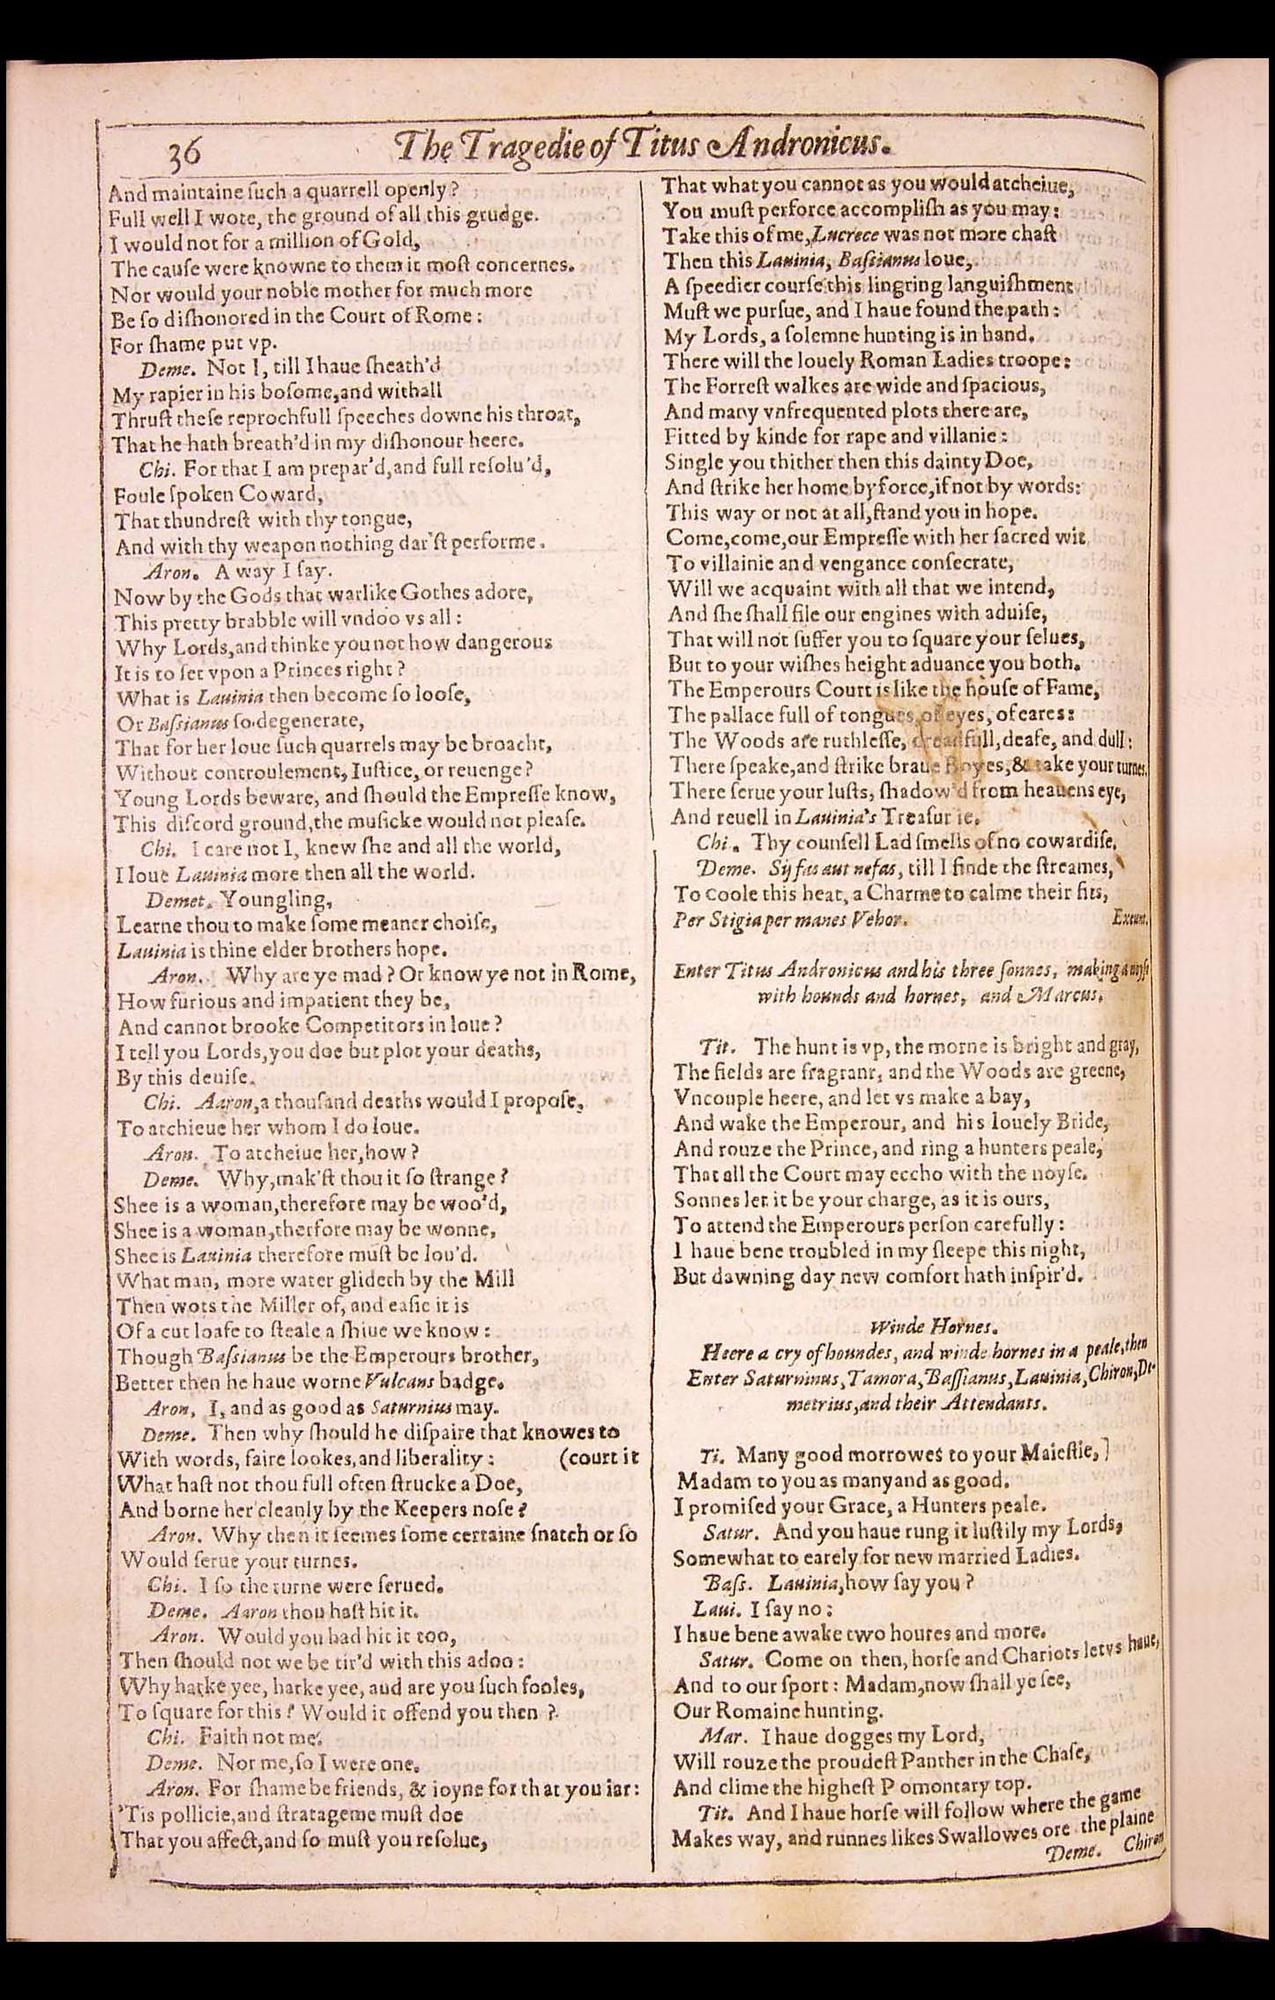 36
The Tragedie of Titus Andronicus.
And maintaine ſuch a quarrell openly?
Full well I wote, the ground of all this grudge.
I would not for a million of Gold,
The cauſe were knowne to them it moſt concernes.
Nor would your noble mother for much more
Be ſo diſhonored in the Court of Rome:
For ſhame put vp.
Deme. Not I, till I haue ſheath'd
My rapier in his boſome,and withall
Thruſt theſe reprochfull ſpeeches downe his throat,
That he hath breath'd in my diſhonour heere.
Chi. For that I am prepar'd,and full reſolu'd,
Foule ſpoken Coward,
That thundreſt with thy tongue,
And with thy weapon nothing dar'ſt performe.
Aron. A way I ſay.
Now by the Gods that warlike Gothes adore,
This pretty brabble will vndoo vs all:
Why Lords,and thinke you not how dangerous
It is to ſet vpon a Princes right?
What is Lauinia then become ſo looſe,
Or Baſsianus ſo degenerate,
That for her loue ſuch quarrels may be broacht,
Without controulement, Iuſtice, or reuenge?
Young Lords beware, and ſhould the Empreſſe know,
This diſcord ground,the muſicke would not pleaſe.
Chi. I care not I, knew ſhe and all the world,
I loue Lauinia more then all the world.
Demet. Youngling,
Learne thou to make ſome meaner choiſe,
Lauinia is thine elder brothers hope.
Aron. Why are ye mad? Or know ye not in Rome,
How furious and impatient they be,
And cannot brooke Competitors in loue?
I tell you Lords,you doe but plot your deaths,
By this deuiſe.
Chi. Aaron,a thouſand deaths would I propoſe,
To atchieue her whom I do loue.
Aron. To atcheiue her,how?
Deme. Why,mak'ſt thou it ſo ſtrange?
Shee is a woman,therefore may be woo'd,
Shee is a woman,therfore may be wonne,
Shee is Lauinia therefore muſt be lou'd.
What man, more water glideth by the Mill
Then wots the Miller of, and eaſie it is
Of a cut loafe to ſteale a ſhiue we know:
Though Baſsianus be the Emperours brother,
Better then he haue worne Vulcans badge.
Aron, I, and as good as Saturnius may.
Deme. Then why ſhould he diſpaire that knowes to
With words, faire lookes,and liberality: (court it
What haſt not thou full often ſtrucke a Doe,
And borne her cleanly by the Keepers noſe?
Aron. Why then it ſeemes ſome certaine ſnatch or ſo
Would ſerue your turnes.
Chi. I ſo the turne were ſerued.
Deme. Aaron thou haſt hit it.
Aron. Would you had hit it too,
Then ſhould not we be tir'd with this adoo:
Why harke yee, harke yee, aud are you ſuch fooles,
To ſquare for this? Would it offend you then?
Chi. Faith not me.
Deme. Nor me,ſo I were one.
Aron. For ſhame be friends, & ioyne for that you iar:
'Tis pollicie,and ſtratageme muſt doe
That you affect,and ſo muſt you reſolue,
That what you cannot as you would atcheiue,
You muſt perforce accompliſh as you may:
Take this of me,Lucrece was not more chaſt
Then this Lauinia, Baſsianus loue,
A ſpeedier courſe this lingring languiſhment
Muſt we purſue, and I haue found the path:
My Lords, a ſolemne hunting is in hand.
There will the louely Roman Ladies troope:
The Forreſt walkes are wide and ſpacious,
And many vnfrequented plots there are,
Fitted by kinde for rape and villanie:
Single you thither then this dainty Doe,
And ſtrike her home by force,if not by words:
This way or not at all,ſtand you in hope.
Come,come,our Empreſſe with her ſacred wit
To villainie and vengance conſecrate,
Will we acquaint with all that we intend,
And ſhe ſhall file our engines with aduiſe,
That will not ſuffer you to ſquare your ſelues,
But to your wiſhes height aduance you both.
The Emperours Court is like the houſe of Fame,
The pallace full of tongues, of eyes, of eares:
The Woods are ruthleſſe, dreadfull,deafe, and dull:
There ſpeake,and ſtrike braue Boyes,& take your turnes.
There ſerue your luſts, ſhadow'd from heauens eye,
And reuell in Lauinia's Treaſurie.
Chi. Thy counſell Lad ſmells of no cowardiſe.
Deme. Sij fas aut nefas, till I finde the ſtreames,
To coole this heat, a Charme to calme their fits,
Per Stigia per manes Vehor. Exeunt.
Enter Titus Andronicus and his three ſonnes, making a noyſe
with hounds and hornes, and Marcus.
Tit. The hunt is vp, the morne is bright and gray,
The fields are fragrant, and the Woods are greene,
Vncouple heere, and let vs make a bay,
And wake the Emperour, and his louely Bride,
And rouze the Prince, and ring a hunters peale,
That all the Court may eccho with the noyſe.
Sonnes let it be your charge, as it is ours,
To attend the Emperours perſon carefully:
I haue bene troubled in my ſleepe this night,
But dawning day new comfort hath inſpir'd.
Winde Hornes.
Heere a cry of houndes, and winde hornes in a peale,then
Enter Saturninus,Tamora,Baſſianus,Lauinia,Chiron,De-
metrius,and their Attendants.
Ti. Many good morrowes to your Maieſtie,
Madam to you as many and as good.
I promiſed your Grace, a Hunters peale.
Satur. And you haue rung it luſtily my Lords,
Somewhat to earely for new married Ladies.
Baſs. Lauinia,how ſay you?
Laui. I ſay no:
I haue bene awake two houres and more.
Satur. Come on then, horſe and Chariots let vs haue,
And to our ſport: Madam,now ſhall ye ſee,
Our Romaine hunting.
Mar. I haue dogges my Lord,
Will rouze the proudeſt Panther in the Chaſe,
And clime the higheſt P omontary top.
Tit. And I haue horſe will follow where the game
Makes way, and runnes likes Swallowes ore the plaine
Deme. Chiron